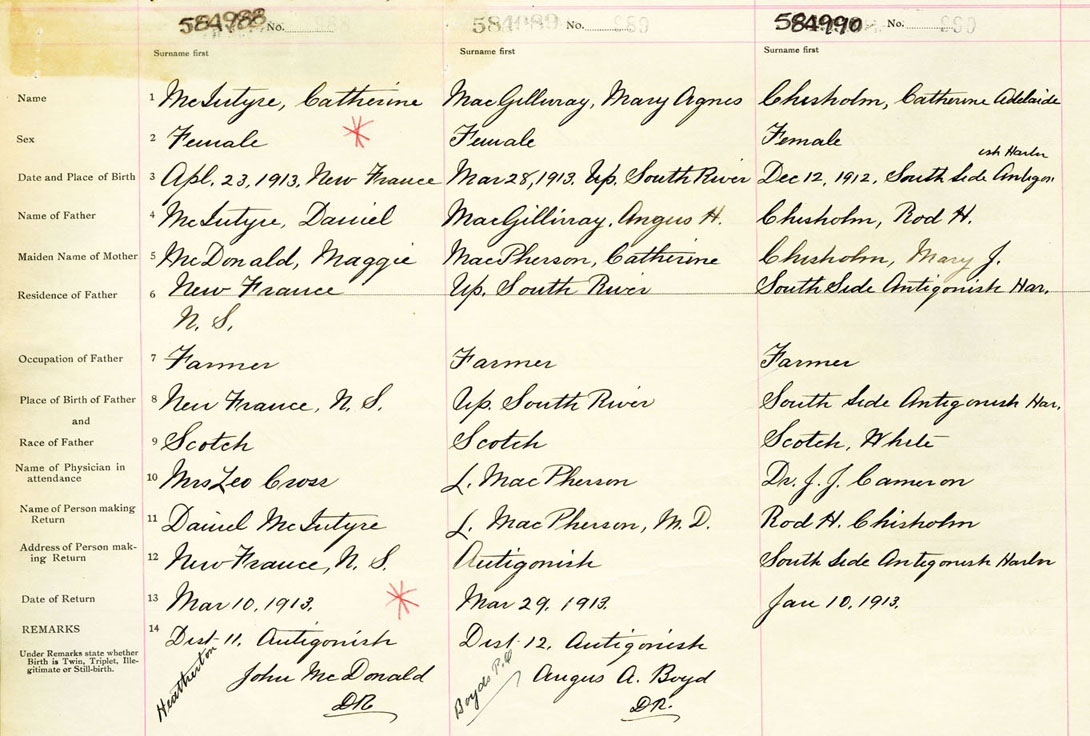 584988 No. 584989 No. 989 584990 No.
Surname first Surname first Surname first
Name 1 McIntyre, Catherine MacGillivray, Mary Agnes Chisholm, Catherine Adelaide
Sex 2 Female Female Female
ish Harbr
Date and Place of Birth 3 Apl. 23, 1913, New France Mar 28, 1913. Up. South River Dec 12, 1912, South Side Antigon
Name of Father 4 McIntyre, Daniel MacGillivray, Angus H. Chisholm, Rod H.
Maiden Name of Mother 5 McDonald, Maggie MacPherson, Catherine Chisholm, Mary J.
Residence of Father 6 New France Up. South River South Side Antigonish Har.
N. S.
Occupation of Father 7 Farmer Farmer Farmer
Place of Birth of Father 8 New France, N. S. Up. South River South Side Antigonish Har.
and
Race of Father 9 Scotch Scotch Scotch, White
Name of Physician in
attendance 10 Mrs Leo Cross L. MacPherson Dr. J. J. Cameron
Name of Person making
Return 11 Daniel McIntyre L. MacPherson, M.D. Rod H. Chisholm
Address of Person mak-
ing Return 12 New France, N. S. Antigonish South Side Antigonish Harbr
Date of Return 13 Mar 10, 1913. Mar 29, 1913. Jan 10, 1913.
REMARKS 14 Dist. 11, Antigonish Dist. 12, Antigonish
Under Remarks state whether
Birth is Twin, Triplet, Ille-
gitimate or Still-birth.
Heatherton John McDonald Boyds P.O Angus A. Boyd
DR DR.